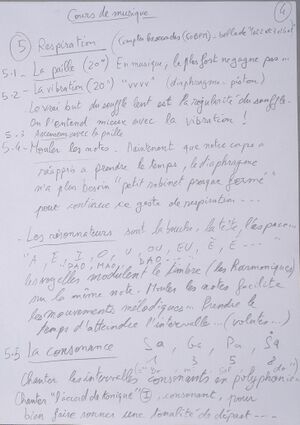 Cours de musique
4
5 Respiration
5.1 - La paille (20") En musique, le plus fort ne gagne pas...
5.2 - La vibration (20") "vvvv" (diaphragme - piston)
Le vrai but du souffle lent est la régularité du souffle.
On l'entend mieux avec la vibration !
5.3 avec la paille
5.4 - Mouler les notes. Maintenant que notre corps a
réappris à prendre le temps, le diaphragme
n'a plus besoin "petit robinet presque fermé"
pour continuer ce geste de respiration...
- Les résonnateurs sont la bouche, la tête, l'espace...
"A, E, I, O, U, OU, EU, È, É - - -
les voyelles modulent le timbre (les Harmoniques)
sur la même note. Mouler les notes facilite
les mouvements mélodiques... Prendre le
temps d'atteindre l'intervalle...
5.5 La consonance Sa, Ga, Pa, Sa
1 3 5 8
Chanter les intervalles consonants en polyphonie
Chanter "l'accord de tonique" I, consonant, pour
bien faire sonner une tonalité de départ - - -